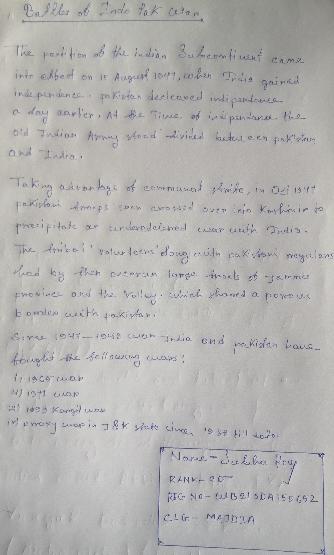 Battles of Indo Pak war
The partition of the indian Subcontinent came
into effect on 15 August 1947, when India gained
independence. pakistan decleared indipendence
a day earlier. At the Time of independence the
Old Indian Army stood divided between pakistan
and India.
Taking advantage of communal strike, in Oct 1947
pakistani troops soon crossed over into Kashmir to
precipitate an undeclared war with India.
The tribal 'volunteers' along with pakistani regulars
had by then overrun large tracts of Jammu
province and the Valley. Which shared a porous
borders with pakistan.
Since 1947-1948 war India and pakistan have
fought the following wars:
i) 1965 war
ii) 1971 war
iii) 1999 Kargil war
iv) proxy war in J&K state since till
Name - Sukha Roy
RANK - CDT
REG NO -
CLG -